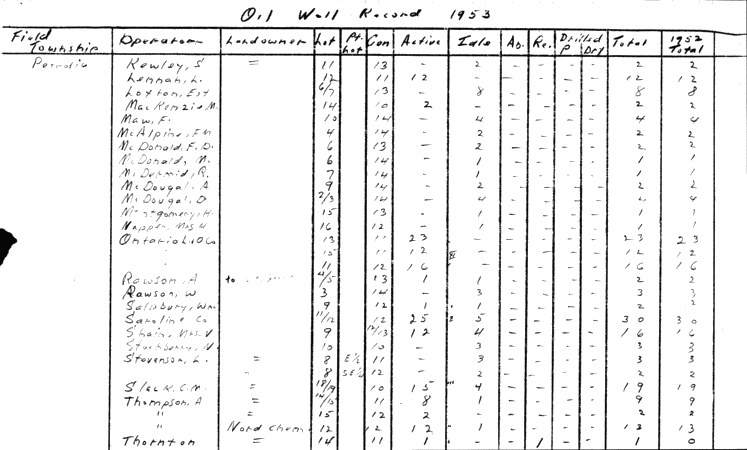 Oil Well Record 1953
Field Township Operator Landowner Lot Pt. Lot Con Active Idle Ab. Re. Drilled P Dry Total 1952 Total
Petrolia Kewley, S = 11 13 - 2 - - - - 2 2
Lennan, L. 12 11 12 - - - - 12 12
Loxton, Est 6/7 13 - 8 - - - - 8 8
MacKenzie, M. 14 10 2 - - - - - 2 2
Maw, F. 10 14 - 4 - - - - 4 4
McAlpine, 4 14 - 2 - - - - 2 2
McDonald, F. D. 6 13 - 2 - - - - 2 2
McDonald, M. 6 14 - 1 - - - - 1 1
McDermid, R. 7 14 - 1 - - - - 1 1
McDougal, A 9 14 - 2 - - - - 2 2
McDougal, D 2/3 14 - 4 - - - - 4 4
Montgomery, 15 13 - 1 - - - - 1 1
Napper, Mrs 16 12 - 1 - - - - 1 1
Ontario L+D Co 13 11 23 - - - - - 23 23
15 11 12 - - - - 12 12
11 12 16 - - - - - 16 16
Rawson, A to 13 1 1 - - - - 2 2
Rawson, W 3 14 - 3 - - - - 3 3
Salisbury, Wm. 9 12 1 1 - - - - 2 2
Saroline Co 11/12 12 25 5 - - - - 30 30
Shain, Mrs. V 9 12/13 12 4 - - - - 16 16
10 10 - 3 - - - - 3 3
Stevenson, L. = 8 E½ 11 - 3 - - - - 3 3
" 8 12 - 2 - - - - 2 2
C.M. = 18/19 10 15 4 - - - - 19 19
Thompson, A = 14/15 11 8 1 - - - - 9 9
" = 15 12 2 - - - - 2 2
" Nord Chem. 12 12 12 1 - - - - 13 13
Thornton = 14 11 1 - - 1 - - 1 0